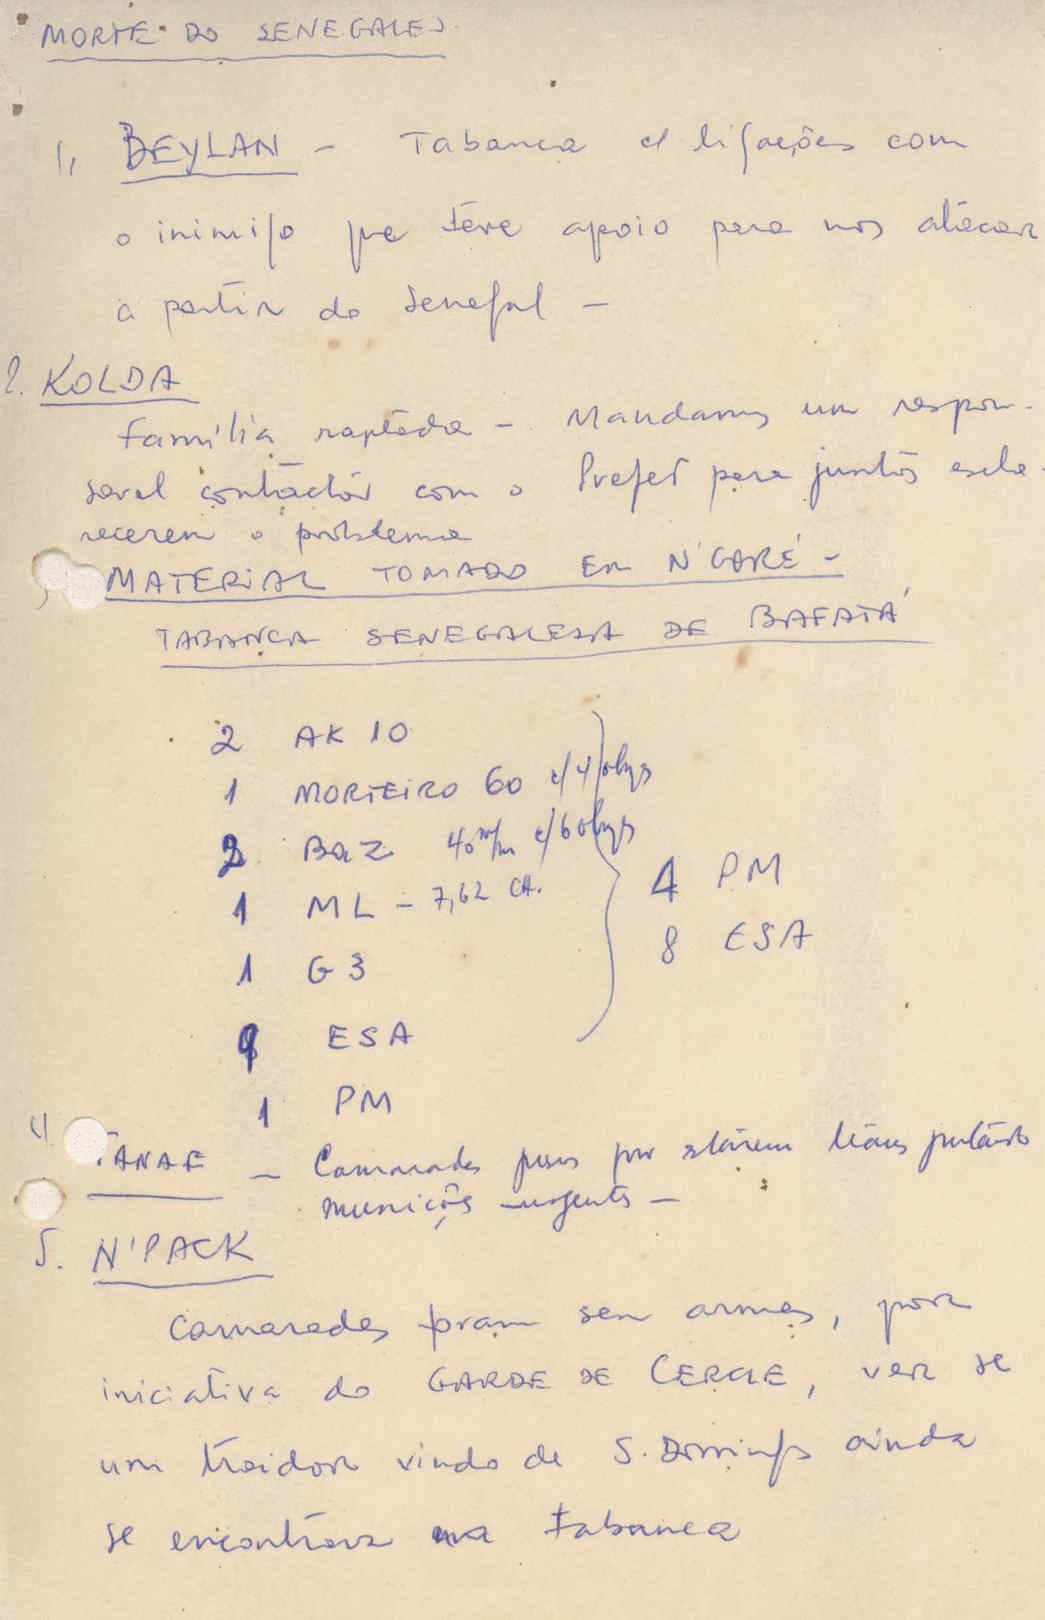 MORTE DO SENEGALES
1, BEYLAN - Tabanca c/ ligações com
o inimigo que teve apoio para nos atacar
a partir do Senegal -
2. KOLDA
Família raptada - Mandamos um respon-
savel contactar com o Prefet para juntos escla-
recerem o problema
MATERIAL TOMADO EM N'GORÉ -
TABANCA SENEGALESA DE BAFATÁ
2 AK 10
1 MORTEIRO 60 c/ 4 obgs
2 BaZ 40 m/m c/ 6 obgs
1 ML - 7,62 CH.
4 PM
1 G3
8 ESA
9 ESA
1 PM
4 TANAF - Camaradas presos por
munições urgentes -
5. N'PACK
Camaradas foram sem armas, por
iniciativa do GARDE DE CERCLE, ver se
um traidor vindo de S. Domingos ainda
se encontrava na tabanca